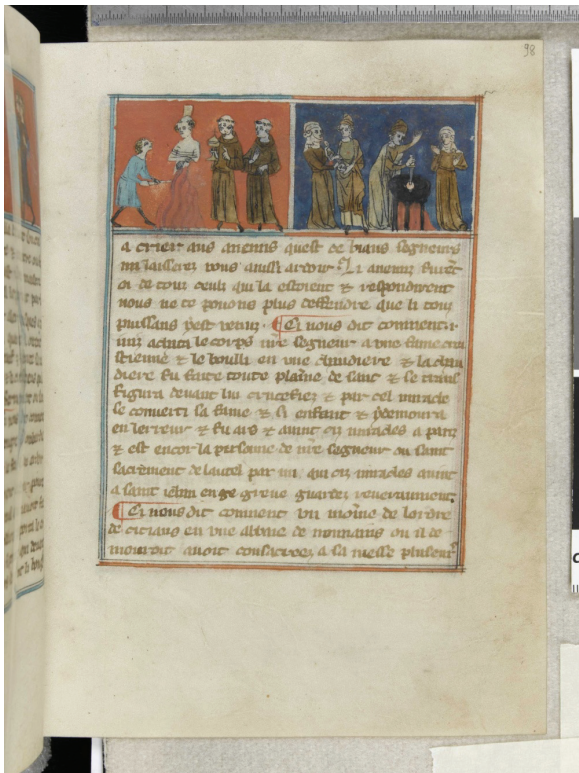 98
a crier aus anemis quest ce biaus segneurs
me laisserez vous ainssi ardoir. Li anemi furẽt
ci de tour ceuli qui la estoient & respondirent
nous ne te poions plus deffendre que li tout
puissans yest venus. Ci nous dit comment .i.
iuif acheta le corps nr̃e segneur a une fame cres
stienne & le boulli en une chaudiere & la chau
diere fu faite toute plaĩne de sanc & se trans
figura devant lui crucefiez & par cel miracle
se converti sa fame & si enfant & demoura
en lerreur & fu ars & avint cis miracles a paris
& est encor la persone de nr̃e segneur ou saint
sacrement de lautel par mi, qui cis miracles avint
a saint iehan en greve guardez reveraument.
Ci nous dit comment un moĩne de lordre
de citiaus en une abbaie de nonnains ou il de
mouroit avoit consacrees a sa messe pluseur